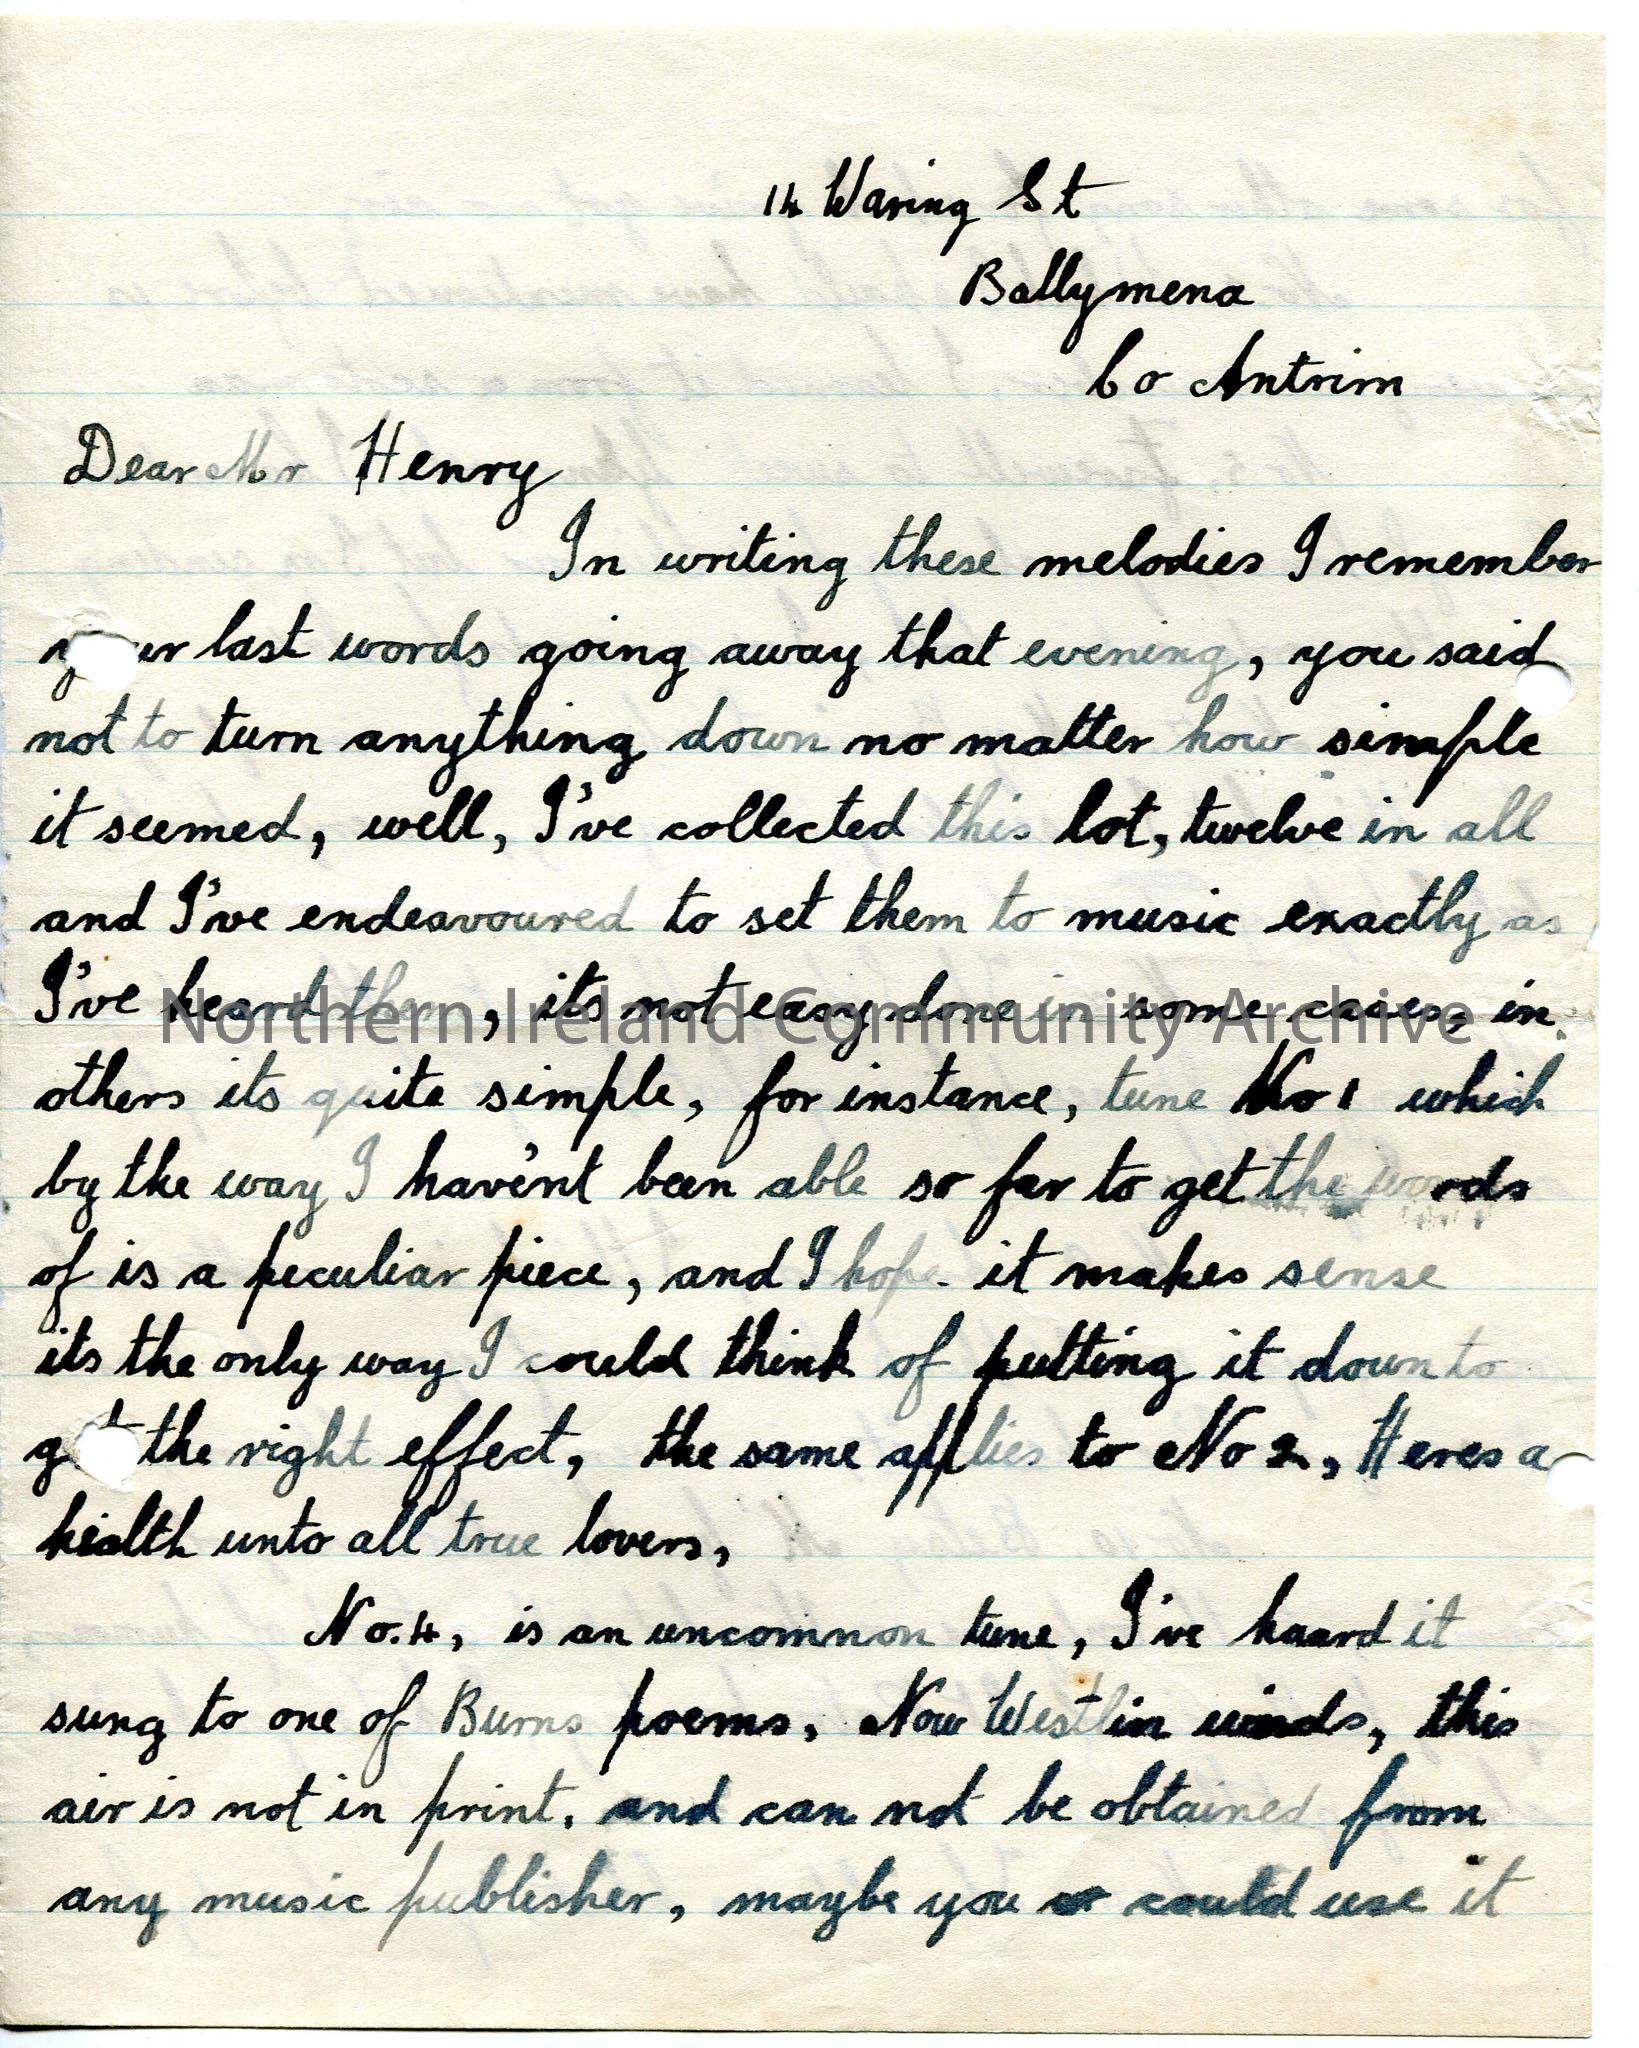 14 Waring St
Ballymena
Co Antrim
Dear Mr Henry
In writing these melodies I remember
your last words going away that evening, you said
not to turn anything down no matter how simple
it seemed, well, I've collected this lot, twelve in all
and I've endeavoured to set them to music exactly as
I've heard them, its not easy done in some cases, in
Northern Ireland Community Archive
others its quite simple, for instance, tune No 1 which
by the way I haven't been able so far to get the words
of is a peculiar piece, and I hope it makes sense
its the only way I could think of putting it down to
get the right effect, the same applies to No 2, Heres a
health unto all true lovers,
No. 4, is an uncommon tune, I've heard it
sung to one of Burns poems, Now Westlin winds, this
air is not in print, and can not be obtained from
any music publisher, maybe you could use it